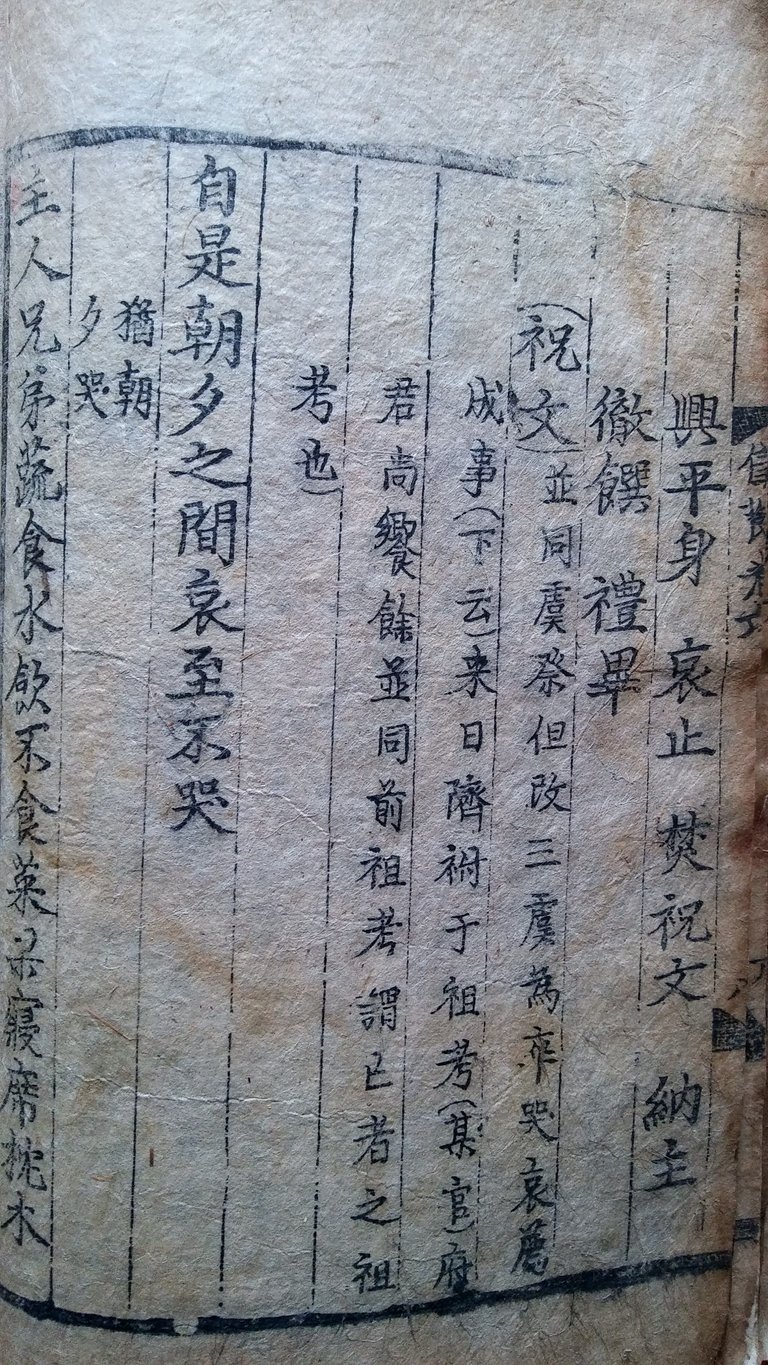 興平身 哀止 焚祝文 納主
徹饌 禮畢
(祝文)並同虞祭但改三虞為卒哭哀薦
成事(下云)来日隮祔于祖考(某官)府
君尚饗餘並同前祖考謂亡者之祖
考也)
自是朝夕之間哀至不哭
猶朝
夕哭
主人兄弟蔬食水飲不食菜果寢席枕木